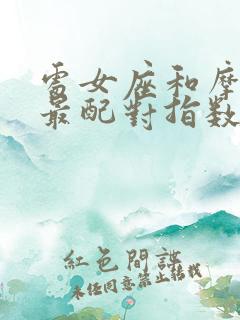 處女座和摩
最配對指數
紅色間諜
未經同意禁止轉載